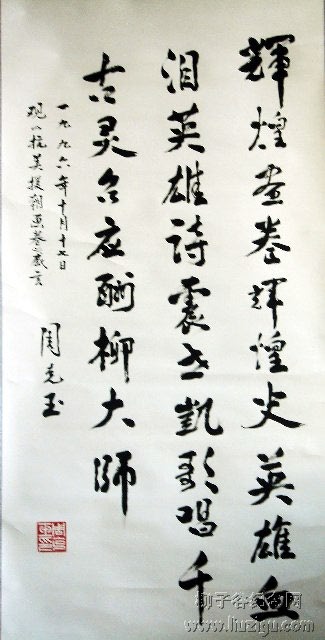 輝煌画卷輝煌史英雄血
泪英雄詩震世凱歌唱千
古灵台应酬柳大師
一九九六年十月十七日
观《抗美援朝画卷》感言
周克玉
柳子谷纪念网
www.liuzigu.com